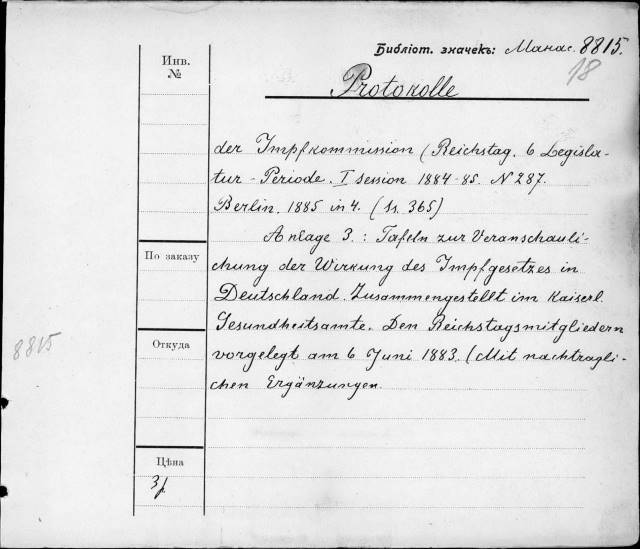 Библіот. значекъ: Манас. 8815.
18
Инв.
№
Protokolle
der Impfkommission (Reichstag. 6 Legisla-
tur-Periode. I session 1884-85. N 287.
Berlin. 1885 in 4. (ss. 365)
Anlage 3.: Tafeln zur Veranschauli-
По заказу
chung der Wirkung des Impfgesetzes in
Deutschland. Zusammengestellt im Kaiserl.
Gesundheitsamte. Den Reichstagsmitgliedern
8815
Откуда
vorgelegt am 6 Juni 1883. (Mit nachträgli-
chen Ergänzungen.
Цѣна
3р.